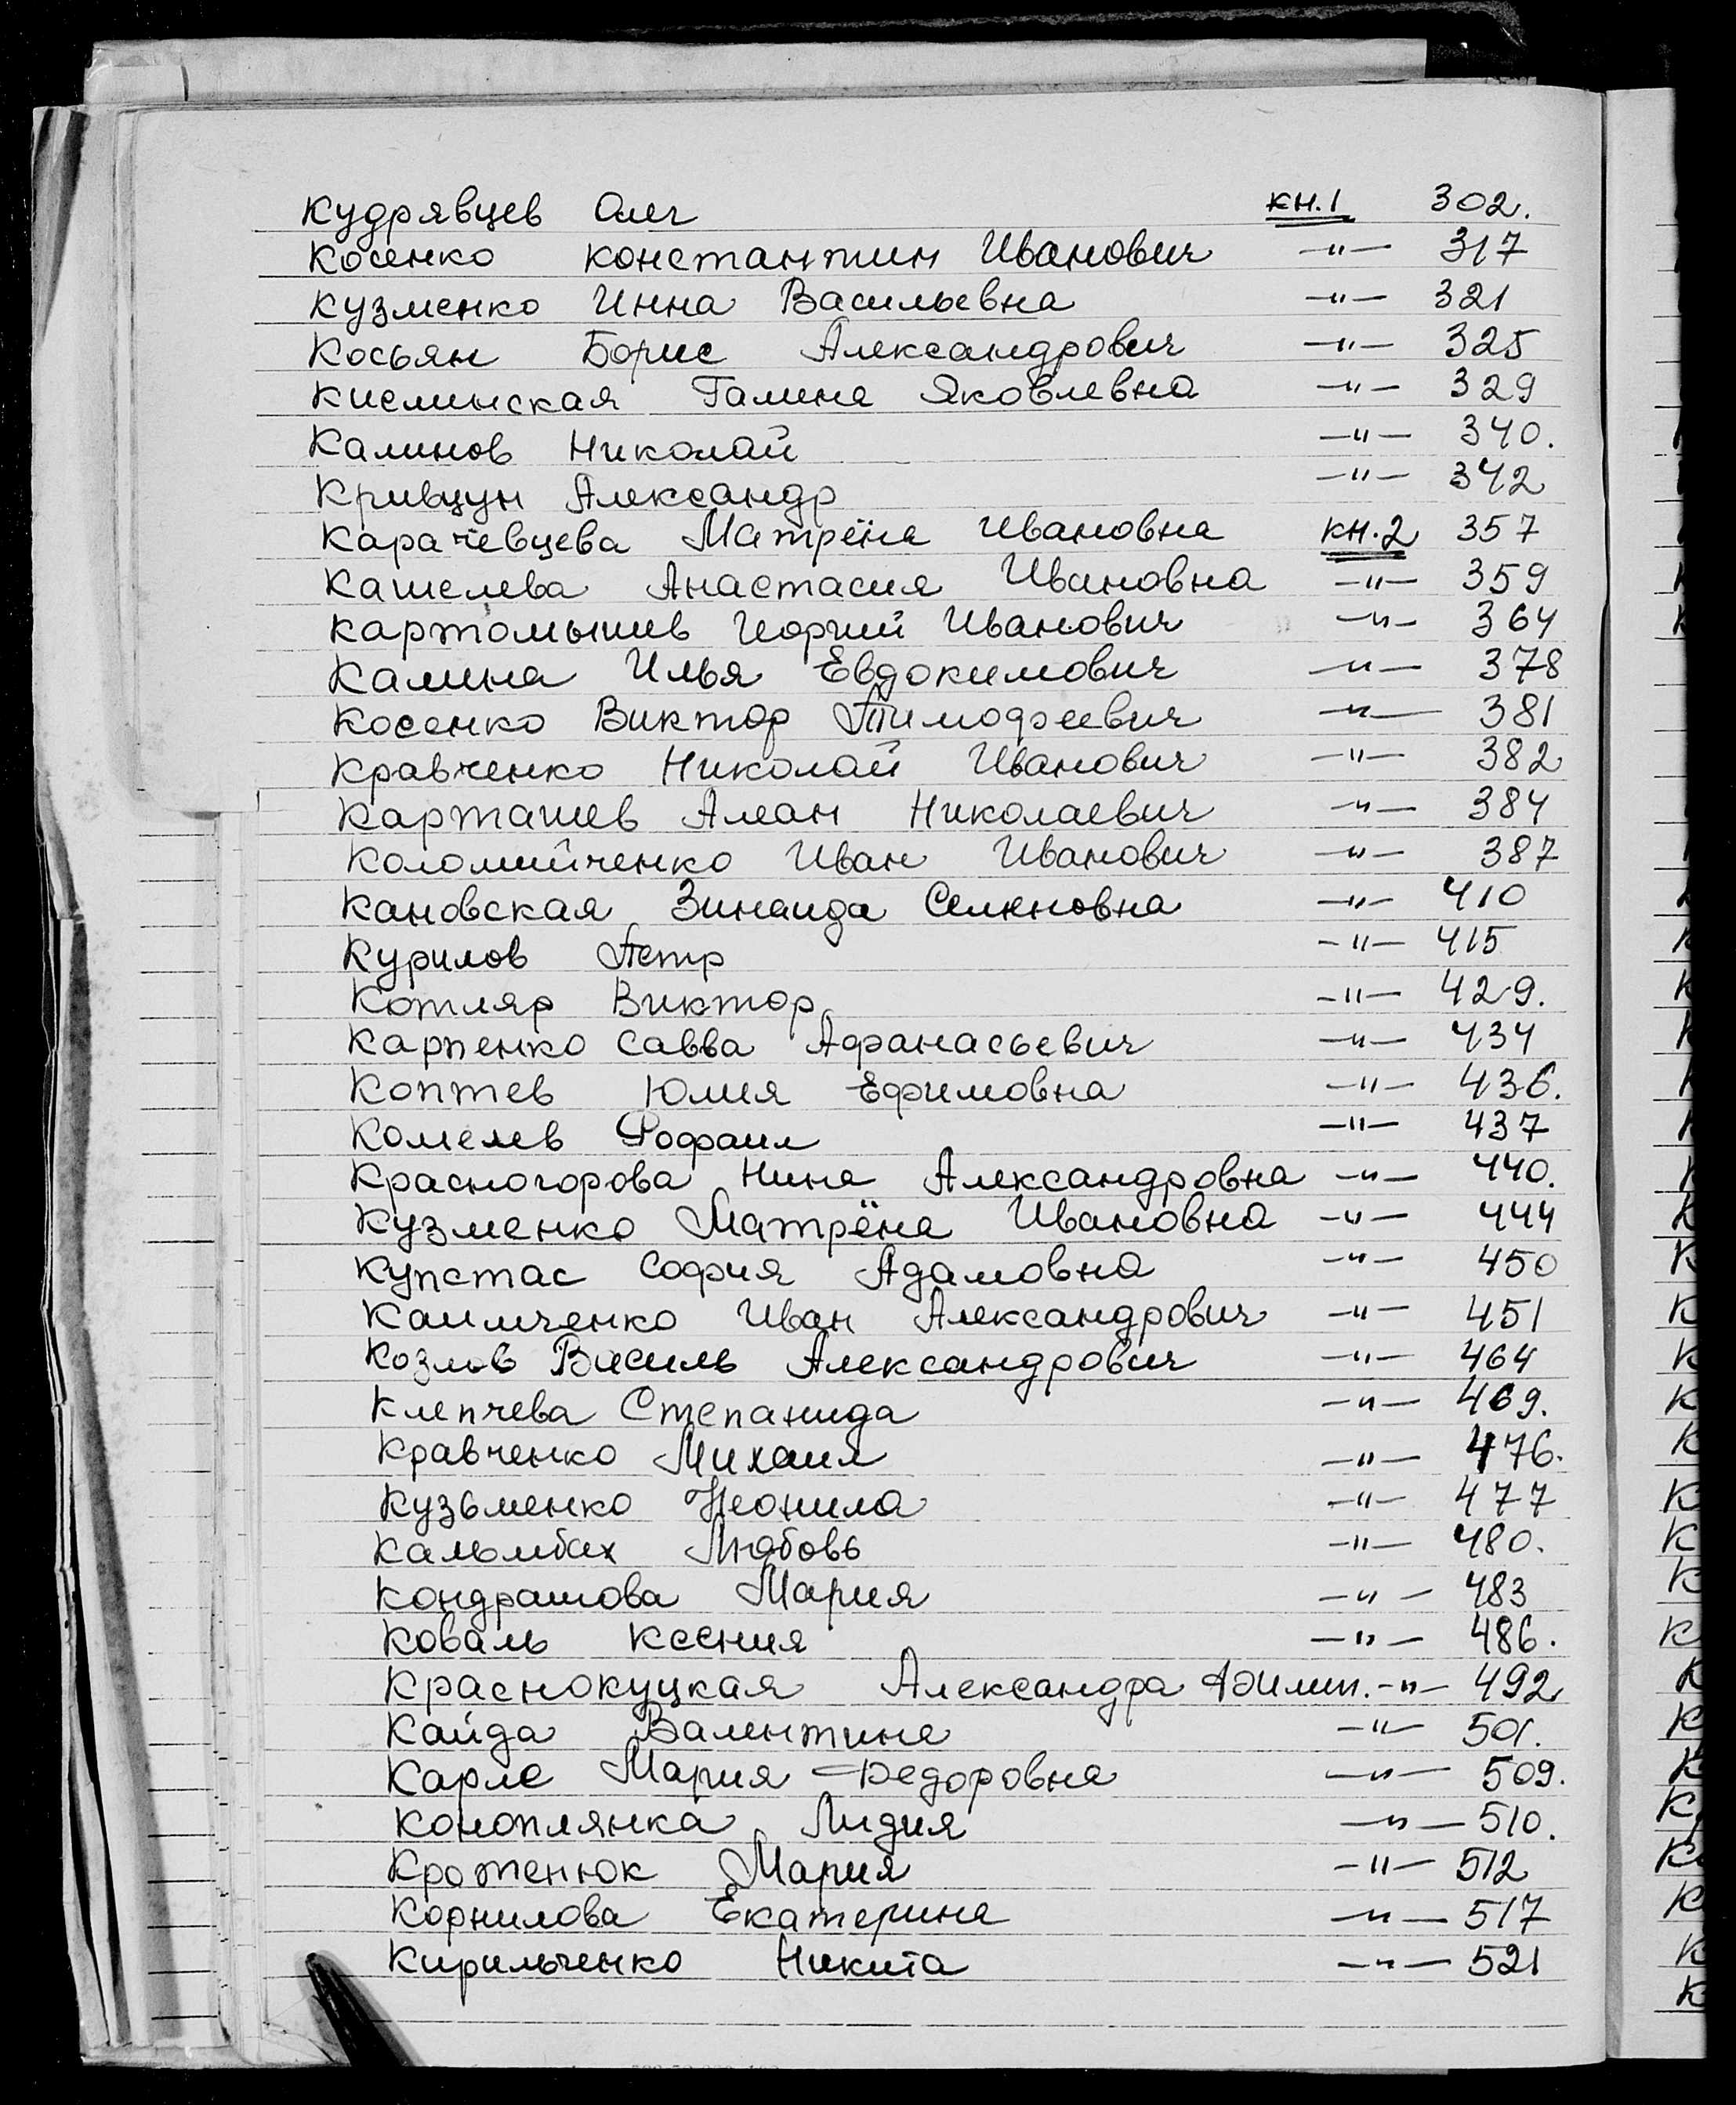 Кудрявцев Олег кн.1 302.
Косенко Константин Иванович —"— 317
Кузменко Инна Васильевна —"— 321
Косьян Борис Александрович —"— 325
Кислинская Галина Яковлевна —"— 329
Калинов Николай —"— 340.
Кривцун Александр —"— 342
Карачёвцева Матрёна Ивановна кн.2 357
Кашелева Анастасия Ивановна —"— 359
Картомышев Георгий Иванович —"— 364
Калина Илья Евдокимович —"— 378
Косенко Виктор Тимофеевич —"— 381
Кравченко Николай Иванович —"— 382
Карташев Алан Николаевич —"— 384
Коломийченко Иван Иванович —"— 387
Кановская Зинаида Семеновна —"— 410
Курилов Петр —"— 415
Котляр Виктор —"— 429.
Карпенко Савва Афанасьевич —"— 434
Коптев Юлия Ефимовна —"— 436.
Комелев Рофаил —"— 437
Красногорова Нина Александровна —"— 440.
Кузменко Матрёна Ивановна —"— 444
Купстас София Адамовна —"— 450
Каимченко Иван Александрович —"— 451
Козлов Василь Александрович —"— 464
Клепчева Степанида —"— 469.
Кравченко Михаил —"— 476.
Кузьменко Неонила —"— 477
Кальмбах Любовь —"— 480.
Кондрашова Мария —"— 483
Коваль Ксения —"— 486.
Краснокуцкая Александра —"— 492
Кайда Валентина —"— 501.
Карле Мария Федоровна —"— 509.
Коноплянка Лидия —"— 510.
Кротенюк Мария —"— 512
Корнилова Екатерина —"— 517
Кирильченко Никита —"— 521